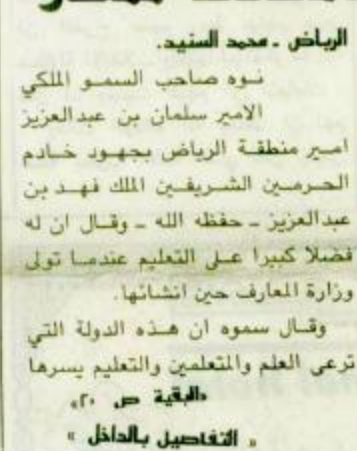 الرياض ـ محمد السنيد.
نـوه صاحب السمـو الملكي
الامير سلمان بن عبدالعزيز
امـير منطقـة الرياض بجهـود خـادم
الحـرمـين الشـريفـين الملك فهـد بن
عبدالعزيز ـ حفظه الله ـ وقـال ان له
فضلا كبيرا عـلى التعليم عندمـا تولى
وزارة المعارف حين انشائها.
وقـال سموه ان هـذه الدولة التي
ترعى العلم والمتعلمين والتعليم يسرها
«البقية ص ٢٠»
« التفاصيل بالداخل »